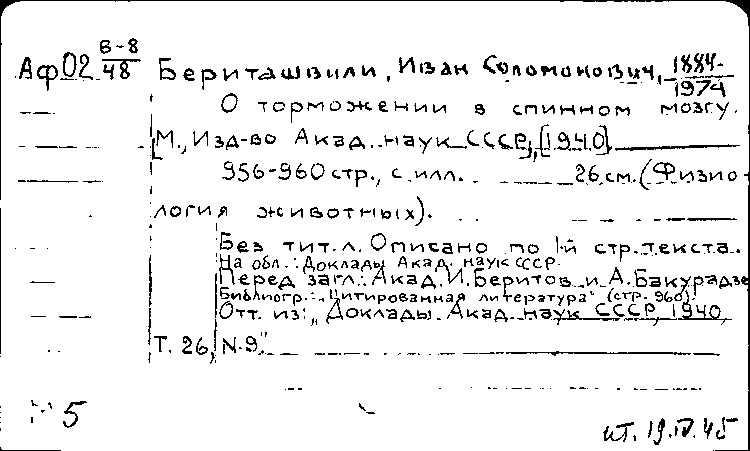 Аф02 В-8/48 Бериташвили, Иван Соломонович, 1884-1974
О торможении в спинном мозгу.
[М., Изд-во Акад. наук СССР], [1940].
956-960 стр., с илл. 26 см. (Физио-
логия животных).
Без тит. л. Описано по 1-й стр. текста.
На обл.: Доклады Акад. наук СССР.
Перед загл.: Акад. И. Беритов и А. Бакурадзе
Библиогр.: "Цитированная литература" (стр. 960).
Отт. из: "Доклады Акад. наук СССР, 1940,
т. 26, N 9."
5
ит. 19.IV.45